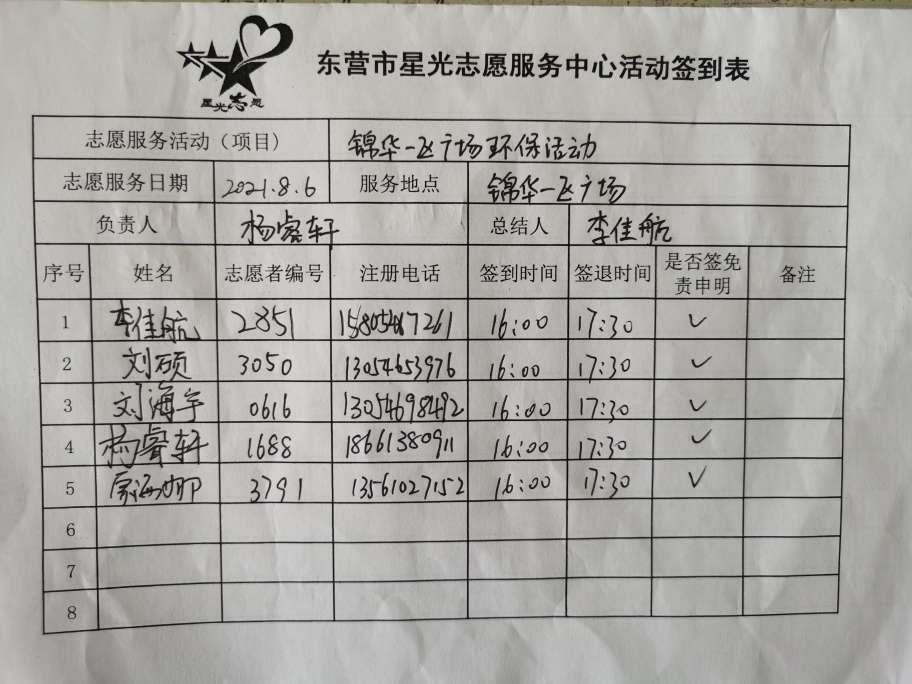 星光志愿
东营市星光志愿服务中心活动签到表
志愿服务活动（项目） 锦华一区广场环保活动
志愿服务日期 2021.8.6 服务地点 锦华一区广场
负责人 杨睿轩 总结人 李佳航
序号 姓名 志愿者编号 注册电话 签到时间 签退时间 是否签免责申明 备注
1 李佳航 2851 16:00 17:30 ✓
2 刘硕 3050 13054653976 16:00 17:30 ✓
3 刘海宇 0616 13054698492 16:00 17:30 ✓
4 杨睿轩 1688 18661380911 16:00 17:30 ✓
5 3791 13561027152 16:00 17:30 ✓
6
7
8